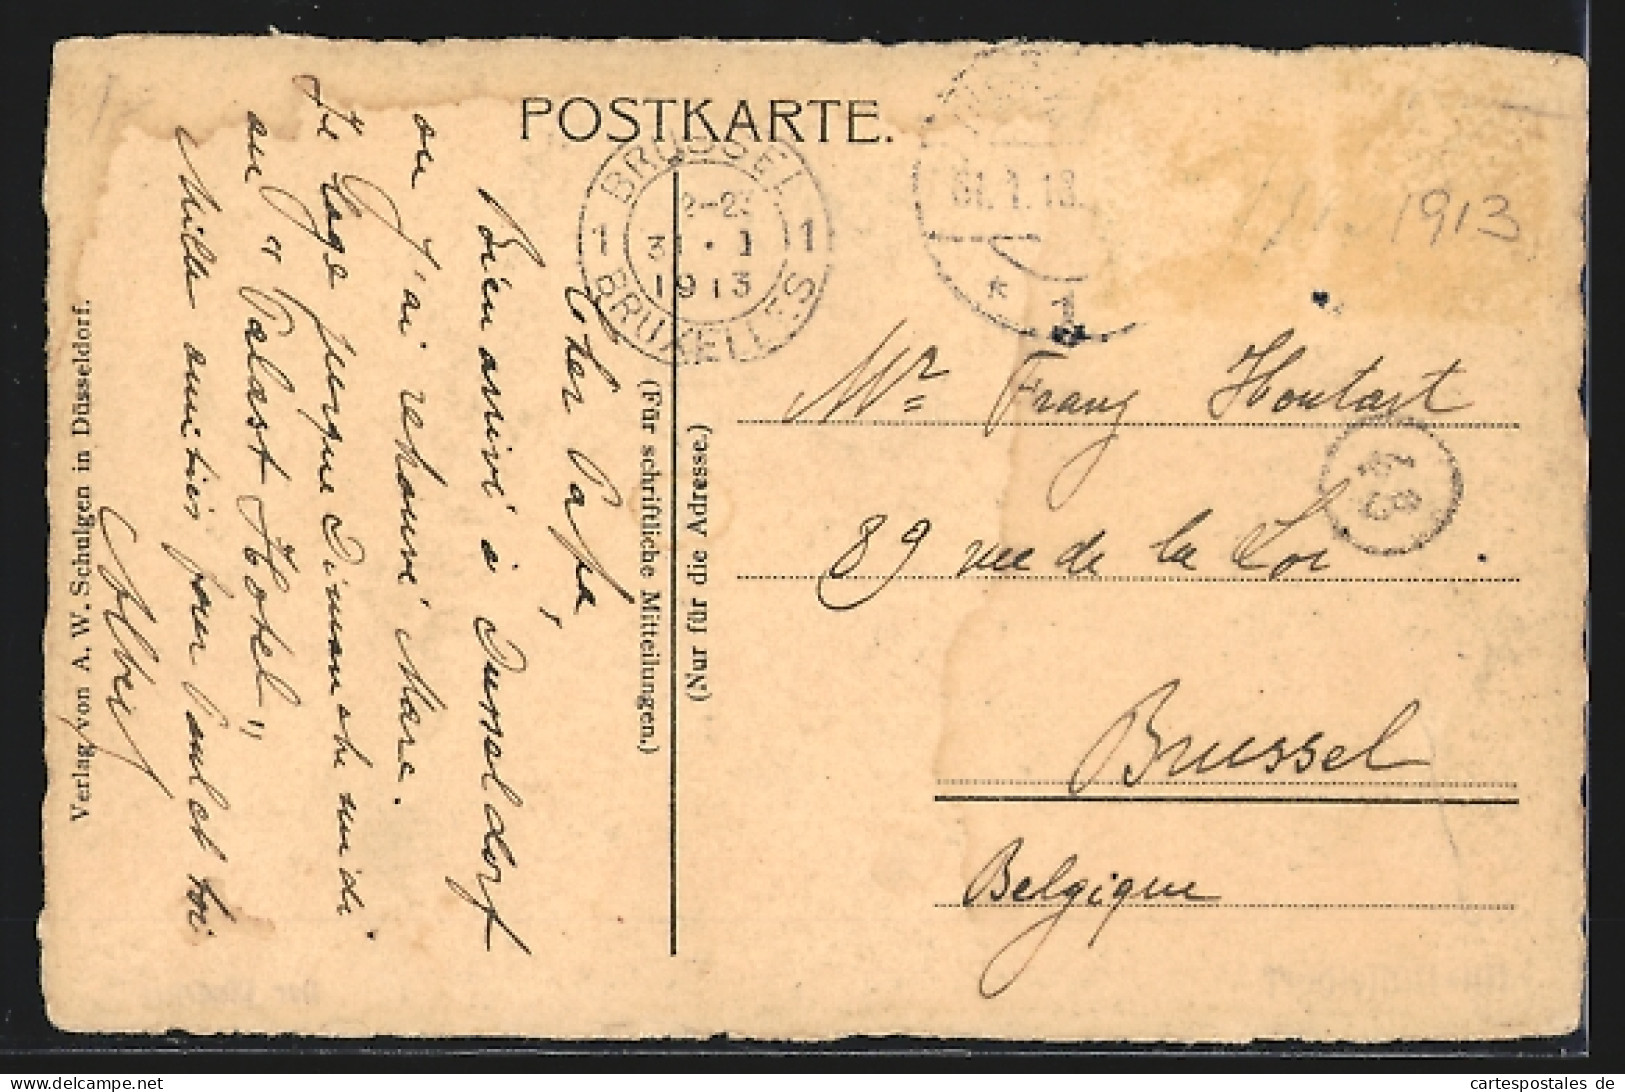 POSTKARTE.
BRUSSEL
1 2-2 1
31 · 1
1913
BRUXELLES
31.1.13.
* 1
1913
Cher Papa,
Bien arrivé à Dusseldorf
ou J'ai retrouvé Marc.
Je loge jusque Dimanche midi
au "Palast Hotel"
Mille amitiés pour Paul et toi
Albert
(Für schriftliche Mitteilungen.)
(Nur für die Adresse.)
Verlag von A. W. Schulgen in Düsseldorf.
Mr Franz Houtart
89 rue de la Loi
Brussel
Belgique
cartespostales de